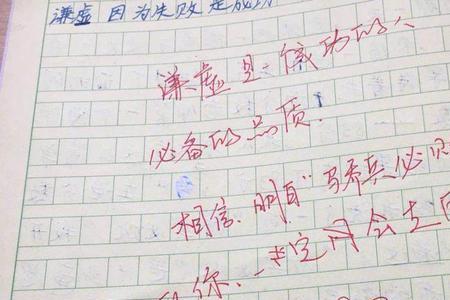 谦虚 因为失败是成功
谦虚是成功的人
必备的品质.
相信,明白"骄兵必
你、一定